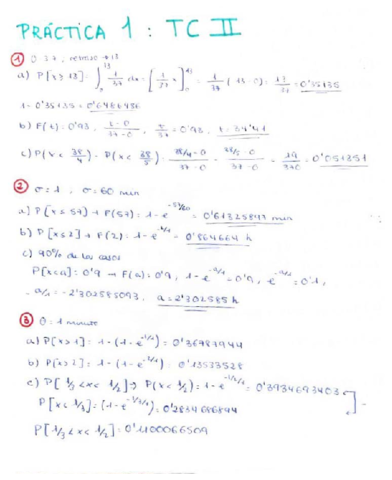 PRÁCTICA 1 : TC II
① 0-37, retraso > 13
a) P[x ≥ 13] = ∫ 1/37 dx = [1/37 x] = 1/37 (13-0) = 13/37 = 0'35135
1 - 0'35135 = 0'6486486
b) F(t) = 0'93, x-0/37-0, x/37 = 0'93, x = 34'41
c) P(x < 38/4) - P(x < 38/5) = 38/4-0/37-0 - 38/5-0/37-0 = 19/370 = 0'051351
② σ = 1, σ = 60 min
a) P[x ≤ 57] → F(57) = 1-e^-57/60 = 0'61325897 min
b) P[x ≤ 2] → F(2) = 1-e^-2/1 = 0'864664 h
c) 90% de los casos
P[x<a] = 0'9 → F(a) = 0'9, 1-e^-a/1 = 0'9, e^-a/1 = 0'1,
- a/1 = -2'302585093, a = 2'302585 h
③ θ = 1 minuto
a) P[x > 1] = 1 - (1-e^-1/1) = 0'36787944
b) P[x > 2] = 1 - (1-e^-2/1) = 0'13533528
c) P[1/3 < x < 1/2] → P(x < 1/2) = 1-e^-1/2/1 = 0'3934693403
P[x ≤ 1/3] = (1-e^-1/3/1) = 0'2834686894
P[1/3 < x < 1/2] = 0'1100066509